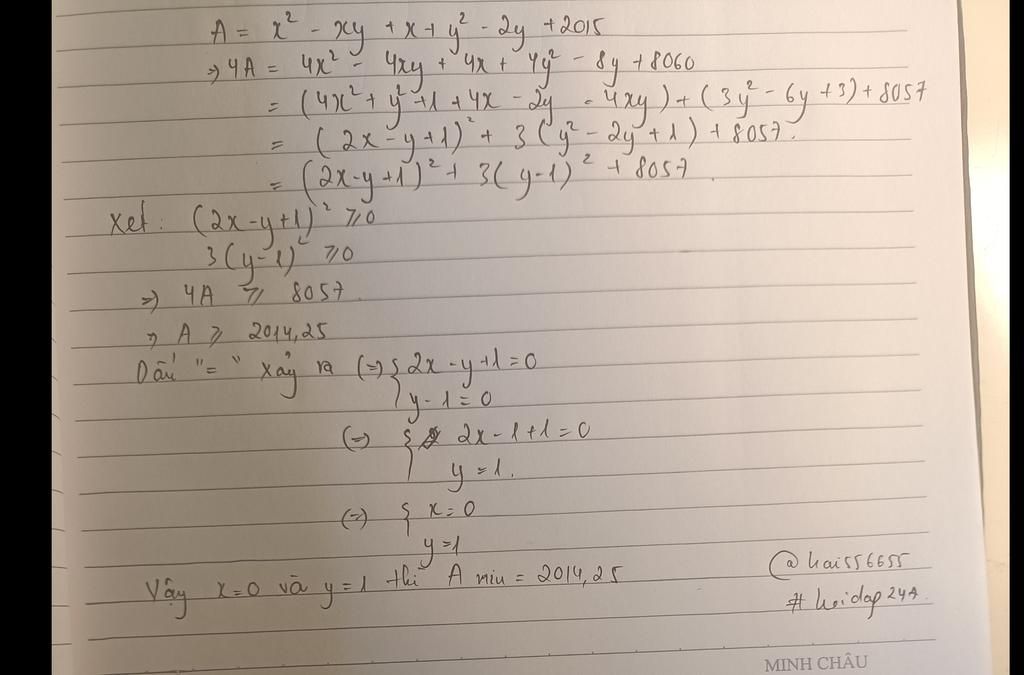 A = x² - xy + x + y² - 2y + 2015
=> 4A = 4x² - 4xy + 4x + 4y² - 8y + 8060
= (4x² + y² + 1 + 4x - 2y - 4xy) + (3y² - 6y + 3) + 8057
= (2x - y + 1)² + 3(y² - 2y + 1) + 8057.
= (2x - y + 1)² + 3(y - 1)² + 8057.
Xét: (2x - y + 1)² ≥ 0
3(y - 1)² ≥ 0
=> 4A ≥ 8057.
=> A ≥ 2014,25
Dấu "=" xảy ra (=> { 2x - y + 1 = 0
y - 1 = 0
(=) { 2x - 1 + 1 = 0
y = 1.
(=) { x = 0
y = 1
Vậy x = 0 và y = 1 thì A min = 2014,25
@hai556655
#hoidap247
MINH CHÂU